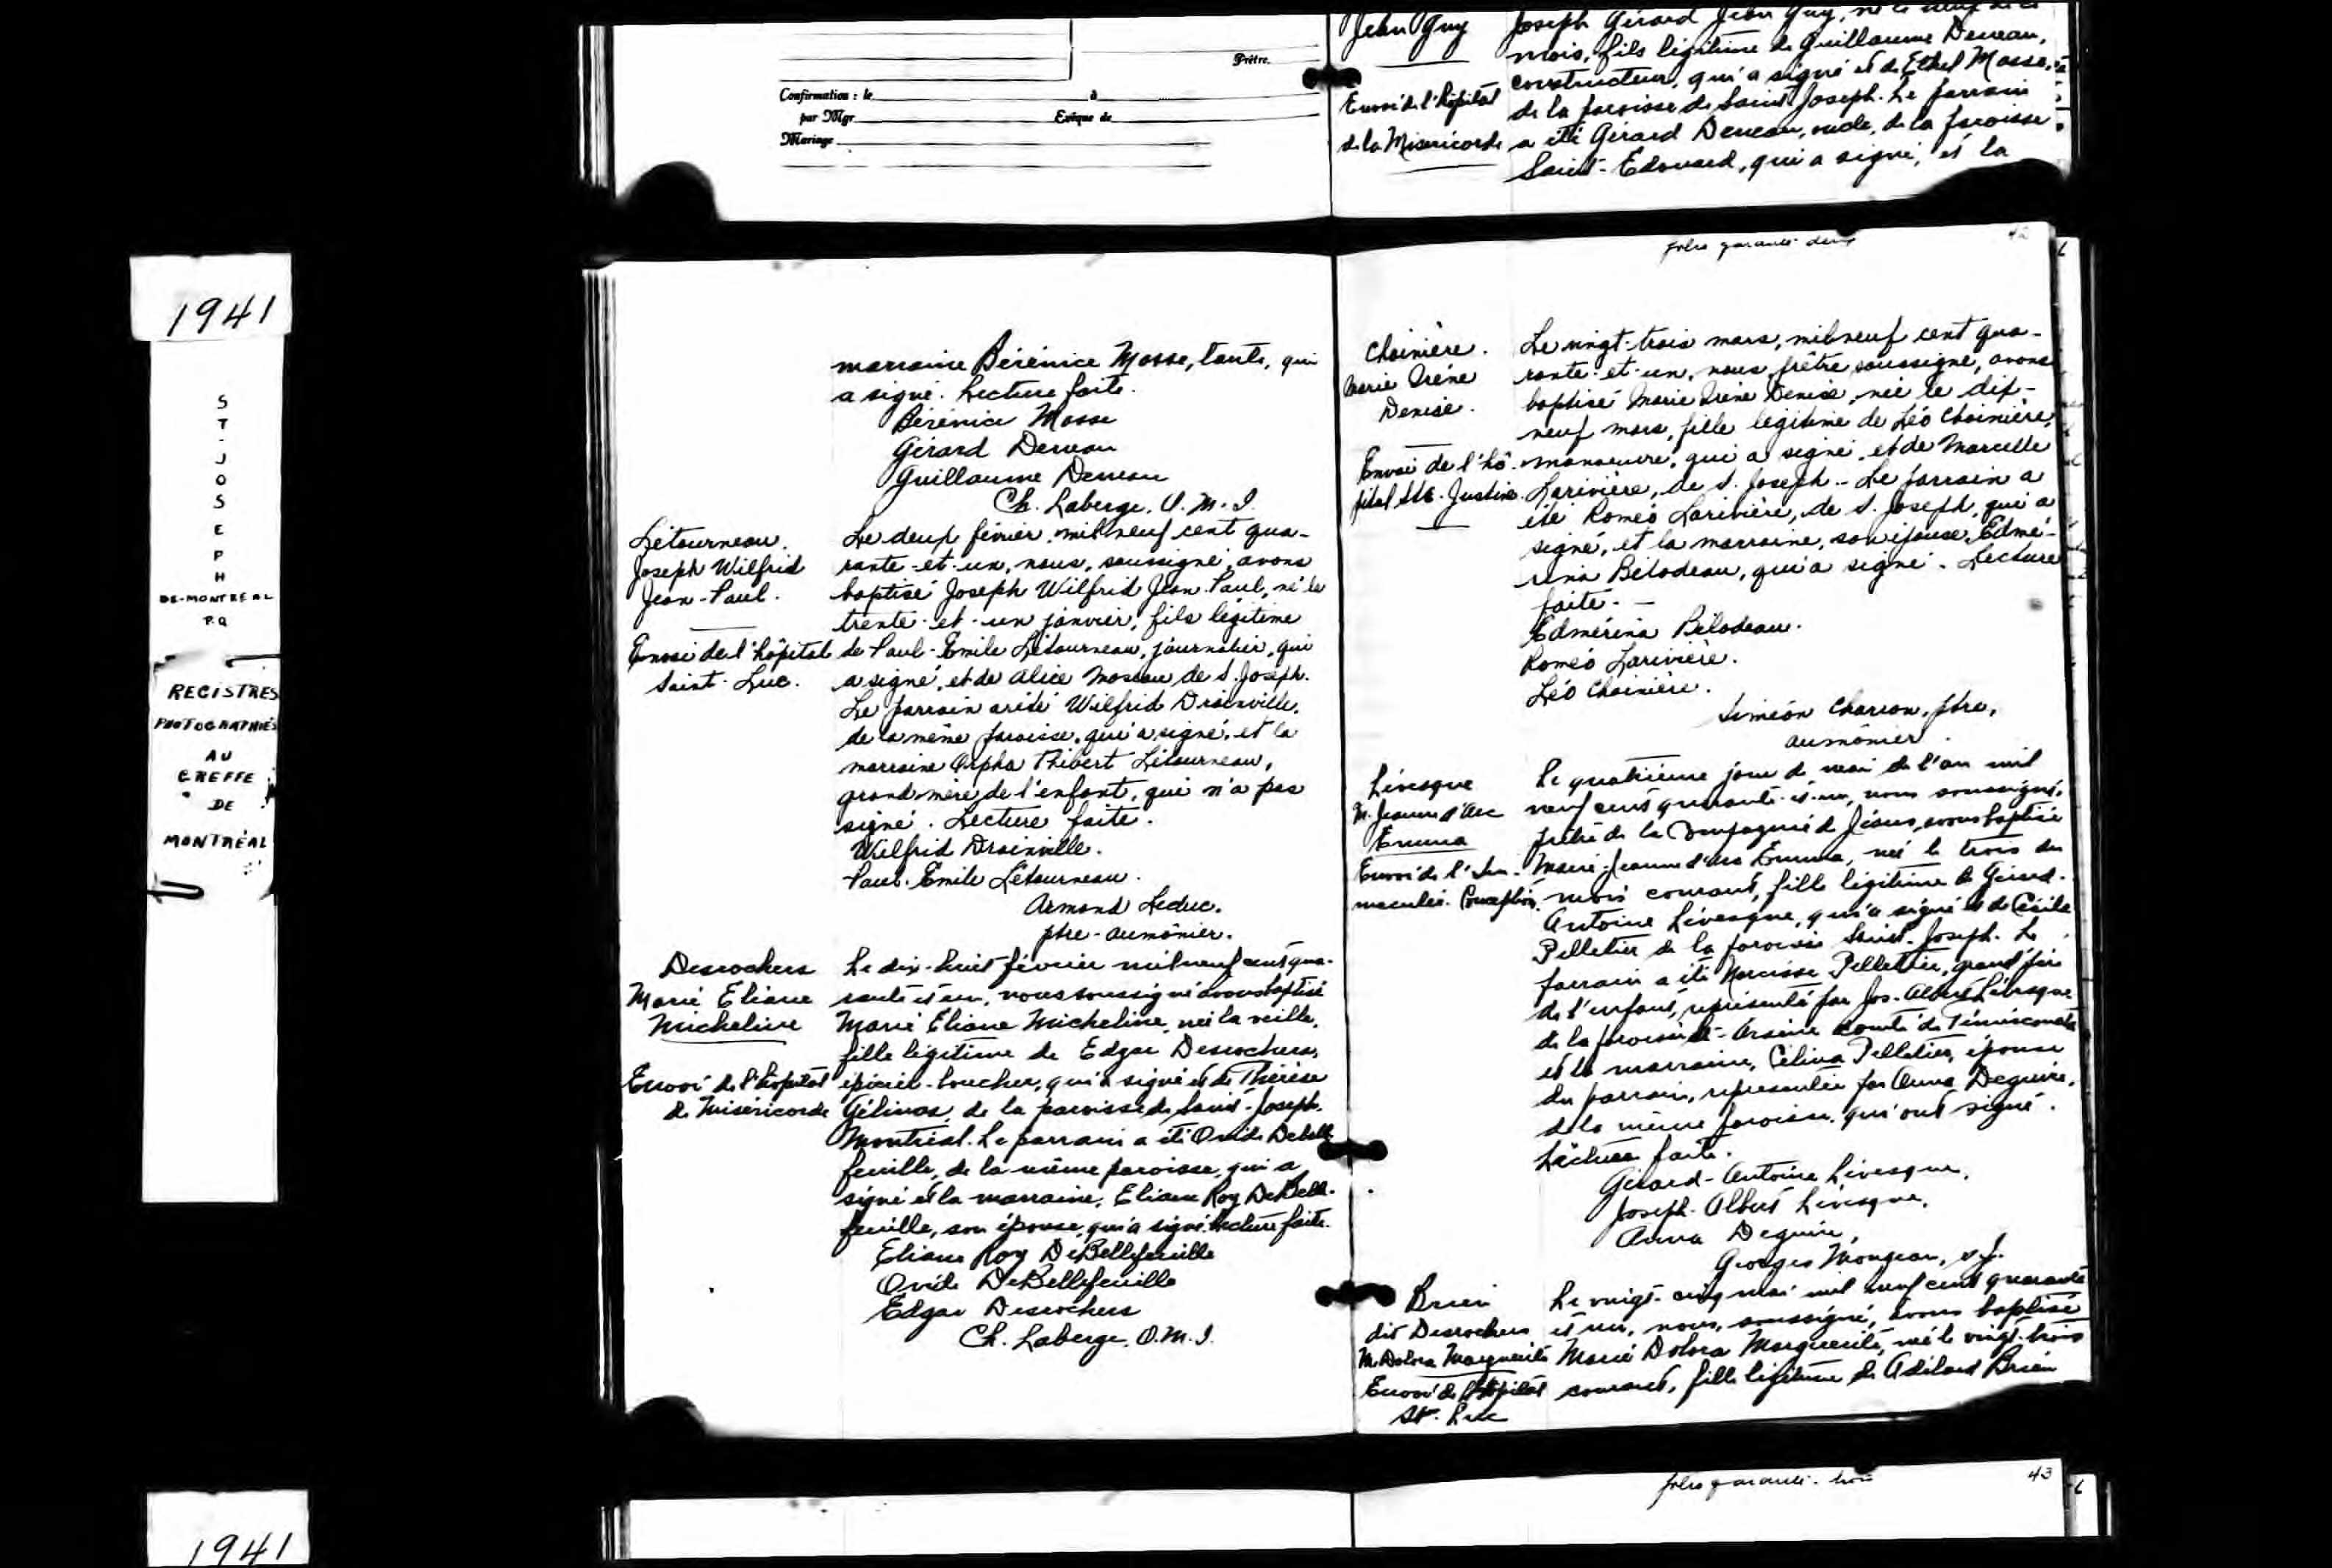 1941
ST-JOSEPH
DE-MONTRÉAL
P.Q
REGISTRES
PHOTOGRAPHIÉS
AU
GREFFE
DE
MONTRÉAL
1941
Prêtre.
Confirmation : le à
par Mgr Evêque de
Mariage
Jean Guy
Envoi de l'hôpital
de la Miséricorde
Joseph Gérard Jean Guy, né le neuf de ce
mois, fils légitime de Guillaume Deneau,
constructeur, qui a signé et de Ethel Mosse,
de la paroisse de Saint Joseph. Le parrain
a été Gérard Deneau, oncle, de la paroisse
Saint-Edouard, qui a signé, et la
marraine Bérénice Mosse, tante, qui
a signé. Lecture faite.
Bérénice Mosse
Gérard Deneau
Guillaume Deneau
Ch. Laberge, O.M.I.
Létourneau.
Joseph Wilfrid
Jean-Paul.
Envoi de l'hôpital
Saint-Luc.
Le deux février, mil neuf cent qua-
rante-et-un, nous, soussigné, avons
baptisé Joseph Wilfrid Jean-Paul, né le
trente-et-un janvier, fils légitime
de Paul-Emile Létourneau, journalier, qui
a signé, et de Alice Moreau, de S. Joseph.
Le parrain a été Wilfrid Drainville,
de la même paroisse, qui a signé, et la
marraine Orpha Thibert Létourneau,
grand'mère de l'enfant, qui n'a pas
signé. Lecture faite.
Wilfrid Drainville.
Paul-Emile Létourneau.
Armand Leduc.
ptre-aumônier.
Desrochers
Marie Eliane
Micheline
Envoi de l'hôpital
de Miséricorde
Le dix-huit février mil neuf cent qua-
rante et un, nous soussigné avons baptisé
Marie Eliane Micheline, née la veille,
fille légitime de Edgar Desrochers,
épicier-boucher, qui a signé et de Thérèse
Gélinas, de la paroisse de Saint-Joseph,
Montréal. Le parrain a été Ovide Debelle
feuille, de la même paroisse, qui a
signé et la marraine, Eliane Roy DeBelle-
feuille, son épouse, qui a signé. Lecture faite.
Eliane Roy DeBellefeuille
Ovide DeBellefeuille
Edgar Desrochers
Ch. Laberge, O.M.I.
folio quarante-deux 42
Choinière.
Marie Irène
Denise.
Envoi de l'hô-
pital Ste. Justine.
Le vingt-trois mars, mil neuf cent qua-
rante-et-un, nous, prêtre soussigné, avons
baptisé Marie Irène Denise, née le dix-
neuf mars, fille légitime de Léo Choinière,
manoeuvre, qui a signé, et de Marcelle
Larivière, de S. Joseph. - Le parrain a
été Roméo Larivière, de S. Joseph, qui a
signé, et la marraine, son épouse, Edmé-
rina Bélodeau, qui a signé. Lecture
faite. -
Edmérina Bélodeau.
Roméo Larivière.
Léo Choinière.
Siméon Charron, ptre,
aumônier.
Lévesque
M. Jeanne d'Arc
Emma
Envoi de l'Im-
maculée-Conception.
Le quatrième jour de mai de l'an mil
neuf cent quarante-et-un, nous soussigné,
prêtre de la Compagnie de Jésus, avons baptisé
Marie-Jeanne d'Arc Emma, née le trois du
mois courant, fille légitime de Gérard-
Antoine Lévesque, qui a signé et de Cécile
Pelletier de la paroisse Saint-Joseph. Le
parrain a été Narcisse Pelletier, grand'père
de l'enfant, représenté par Jos. Albert Lévesque
de la paroisse St-Arsène comté de Témiscouata
et la marraine, Célina Pelletier, épouse
du parrain, représentée par Anna Deguire,
de la même paroisse, qui ont signé.
Lecture faite.
Gérard-Antoine Lévesque,
Joseph-Albert Lévesque,
Anna Deguire,
Georges Mongeau, s.j.
Brien
dit Desrochers
M. Dolora Marguerite
Envoi de l'hôpital
St-Luc
Le vingt-cinq mai mil neuf cent quarante
et un, nous, soussigné, avons baptisé
Marie Dolora Marguerite, née le vingt-trois
courant, fille légitime de Adélard Brien
folio quarante-trois 43